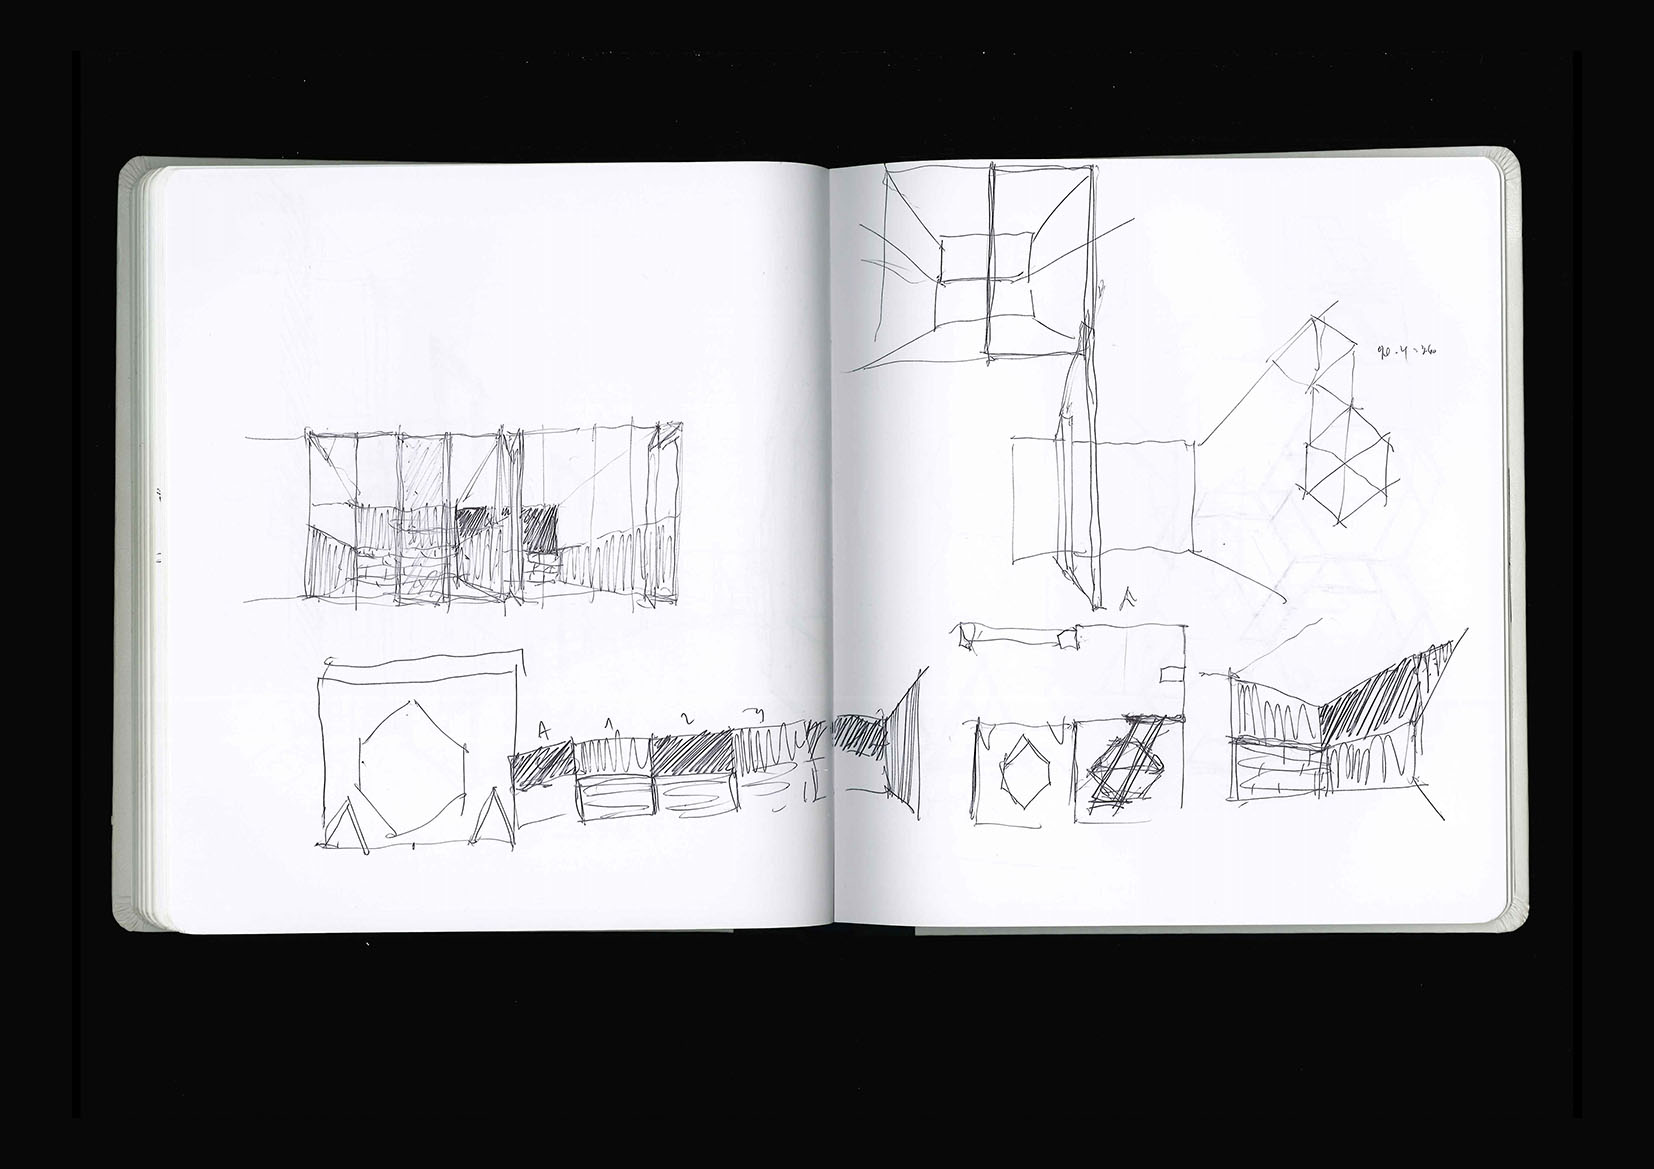 A
1
2
3
A
90 · 4 = 360